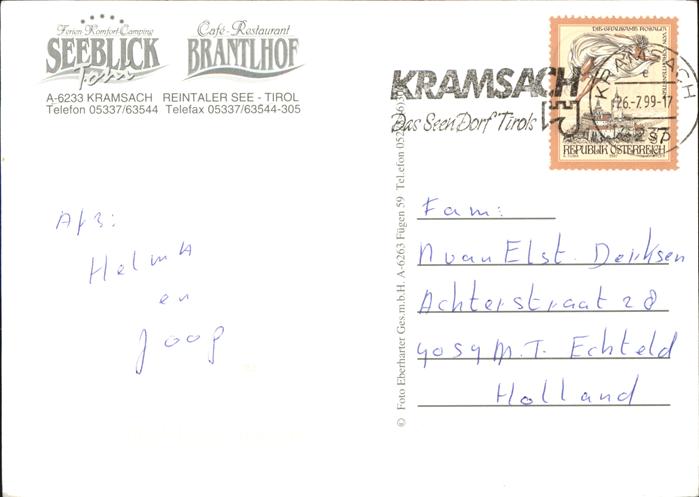 Ferien-Komfort-Camping
SEEBLICK
Toni
Café-Restaurant
BRANTLHOF
A-6233 KRAMSACH REINTALER SEE - TIROL
Telefon 05337/63544 Telefax 05337/63544-305
KRAMSACH
Das Seen Dorf Tirols
KRAMSACH
26.-7.99-17
REPUBLIK ÖSTERREICH
© Foto Eberharter Ges.m.b.H. A-6263 Fügen 59 Telefon
Afz:
Helma
en
Joop
Fam:
N van Elst. Derksen
Achterstraat 28
4054 M.T. Echteld
Holland